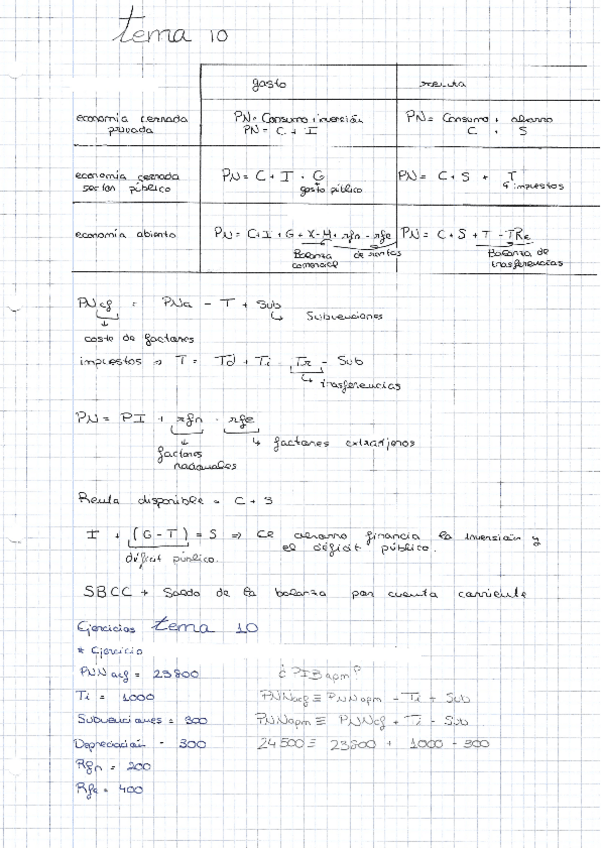 tema 10
gasto renta
economía cerrada privada PN= Consumo + inversión PN= Consumo + ahorro
PN = C + I C + S
economía cerrada sector público PN = C + I + G PN = C + S + T
gasto público impuestos
economía abierta PN = C+I+G+X-M+rfn-rfe PN = C+S+T-TRe
Balanza comercial de rentas Balanza de trasferencias
PNcf = PNa - T + Sub
Subvenciones
costo de factores
impuestos => T = Td + Ti Tr - Sub
trasferencias
PN = PI + rfn - rfe
factores extranjeros
factores nacionales
Renta disponible = C + S
I + (G-T) = S => el ahorro financia la inversión y
el déficit público.
déficit público.
SBCC + Saldo de la balanza por cuenta corriente
Ejercicios tema 10
* Ejercicio
PNNacf = 23800 ¿PIBapm?
Ti = 1000 PNNacf ≡ PNNapm - Ti + Sub
Subvenciones = 300 PNNapm ≡ PNNcf + Ti - Sub
Depreciación - 300 24500 ≡ 23800 + 1000 - 300
Rfn = 200
Rfe = 400